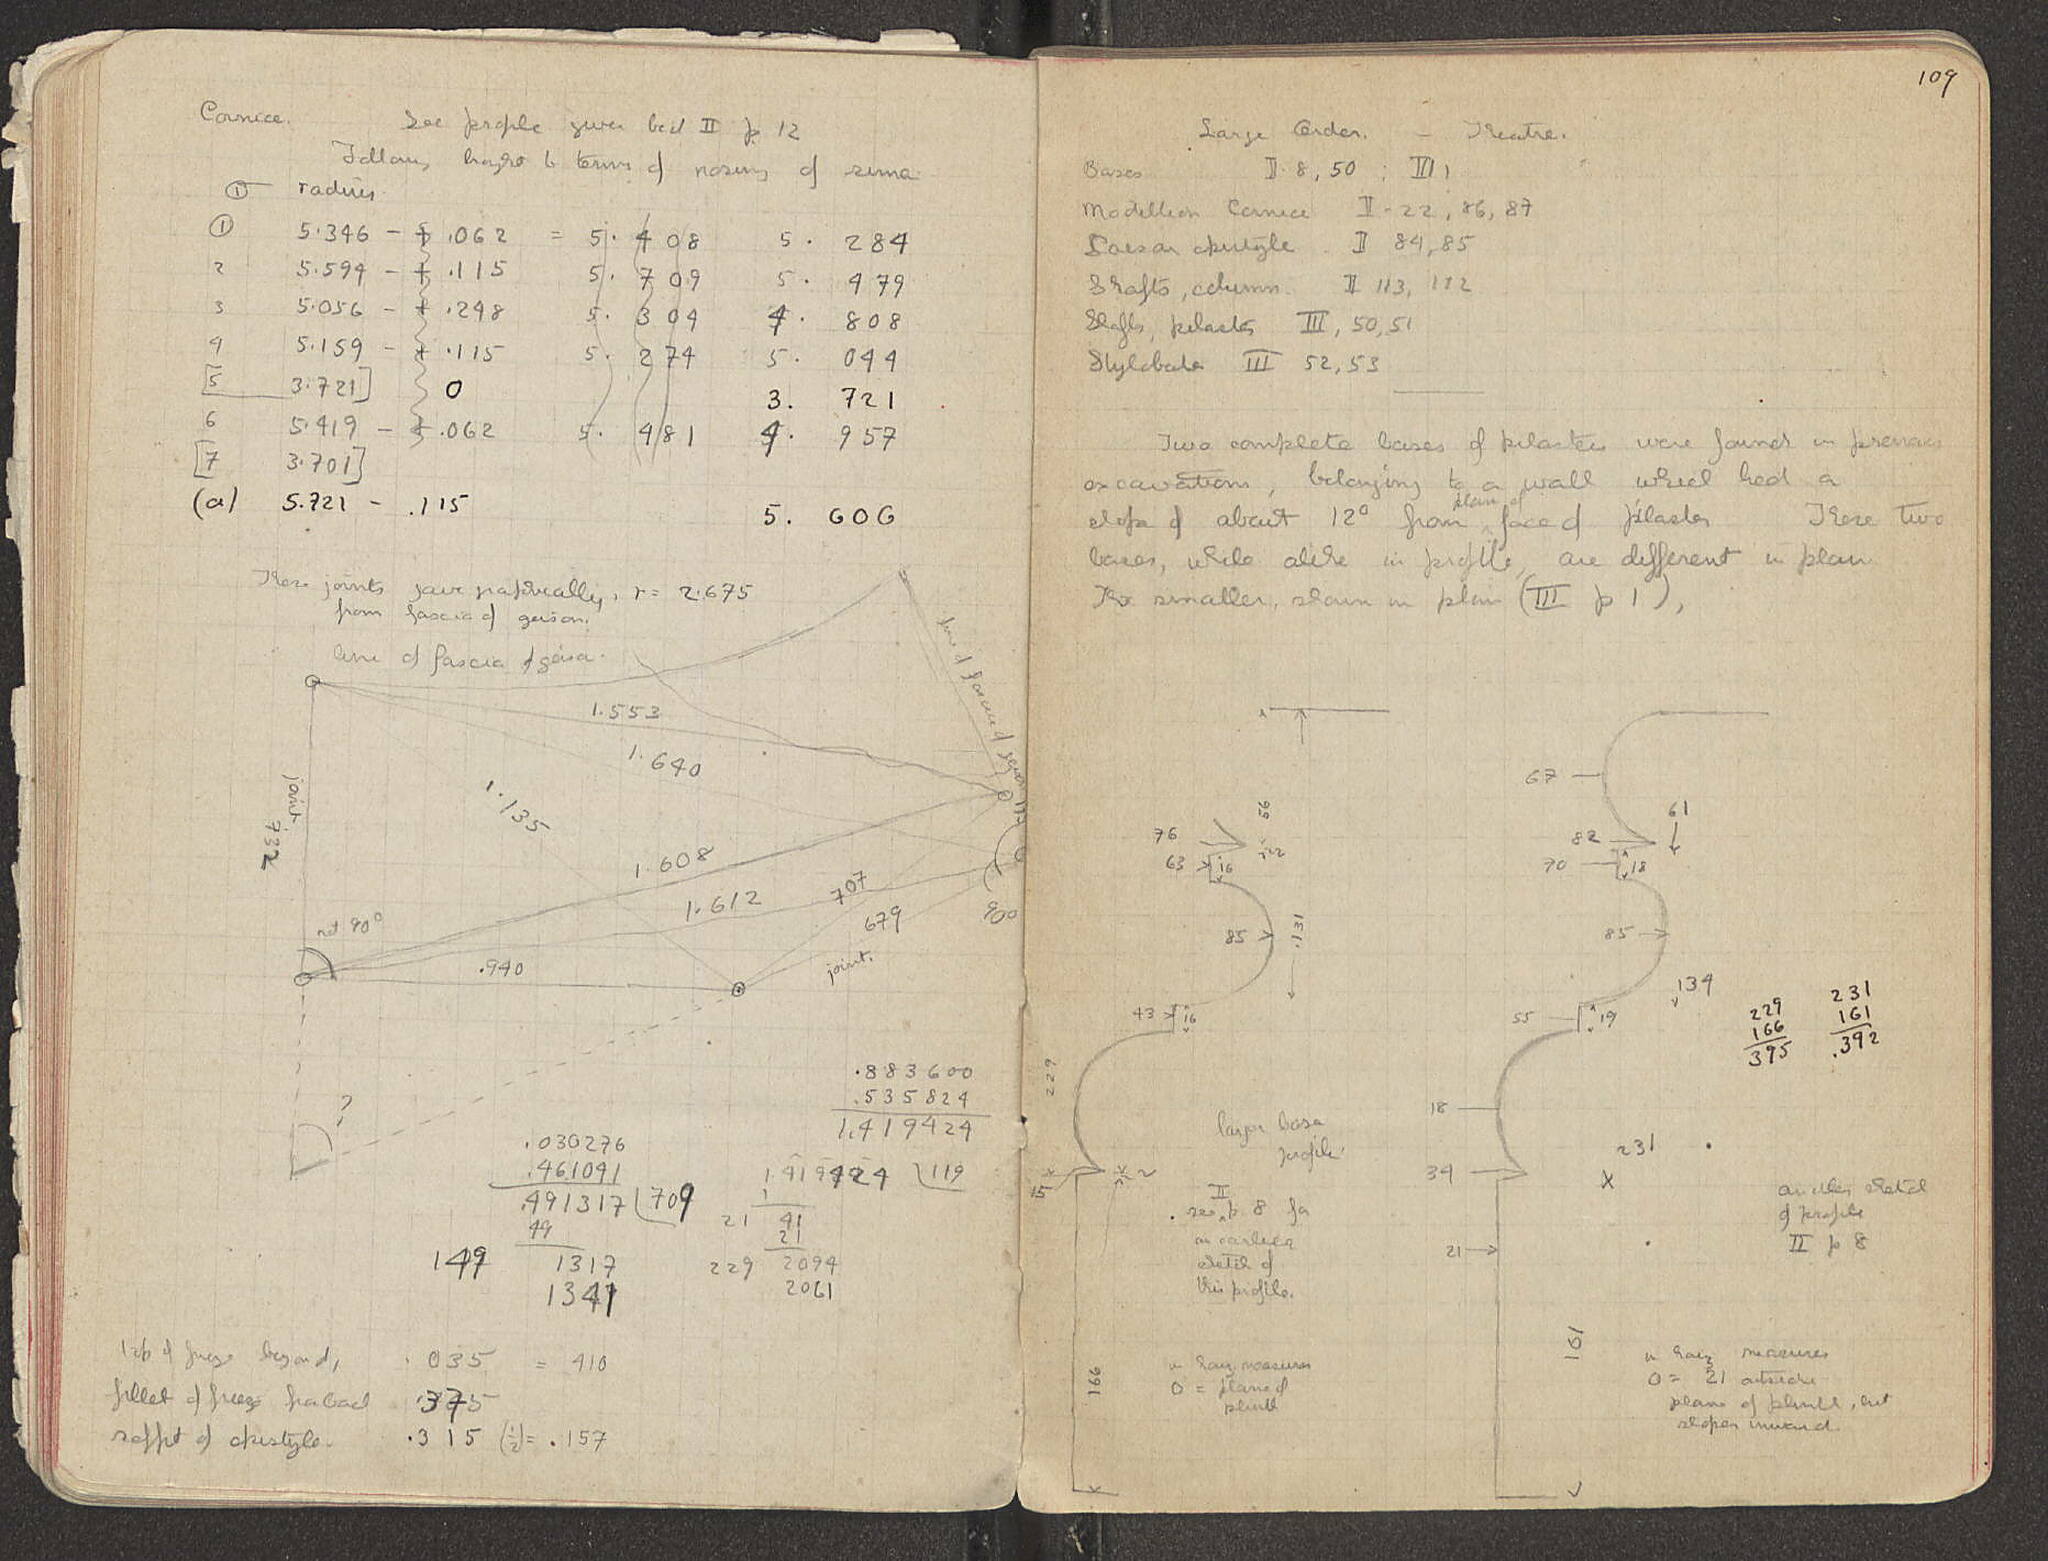 Cornice. See profile given bed II p. 12
Following brought to terms of nosing of sima
① radius.
① 5.346 - + .062 = 5. 408 5. 284
2 5.594 - + .115 5. 709 5. 479
3 5.056 - + .248 5. 304 4. 808
4 5.159 - + .115 5. 274 5. 044
[5 3.721] 0 3. 721
6 5.419 - + .062 5. 481 4. 957
[7 3.701]
(a) 5.721 - .115 5. 606
These joints gave graphically, r = 2.675
from fascia of geison.
line of fascia of geisa.
line of fascia of geison
1.553
1.640
1.135
joint.
732
1.608
1.612
707
679
90°
not 90°
.940
joint.
?
.883600
.535824
1.419424
.030276
.461041
.491317 709
49
149 1317
1341
1.419424 119
1
21 41
21
229 2094
2061
top of frieze beyond, .035 = 410
fillet of frieze 375
soffit of epistyle. .315 (½) = .157
109
Large Order. - Theatre.
Bases II. 8, 50 ; III 1
Modillion Cornice II - 22, 86, 87
epistyle II 84, 85
Shafts, column. II 113, 112
Shafts, pilaster III, 50, 51
Stylobate III 52, 53
Two complete bases of pilasters were found in previous
excavations, belonging to a wall which had a
slope of about 12° from plane of face of pilaster These two
bases, while alike in profile, are different in plan
The smaller, shown in plan (III p 1),
67
56
76
22
61
82
63
16
70
18
85
.131
85
134
43
16
55
19
229
166
395
231
161
.392
229
larger base
profile.
18
231
15
2
34
X
II
see p. 8 for
an earlier
sketch of
this profile.
another sketch
of profile
II p 8
21
166
in horiz. measures
0 = plane of
plinth
161
in horiz measures
0 = 21 outside
plane of plinth, but
slopes inward